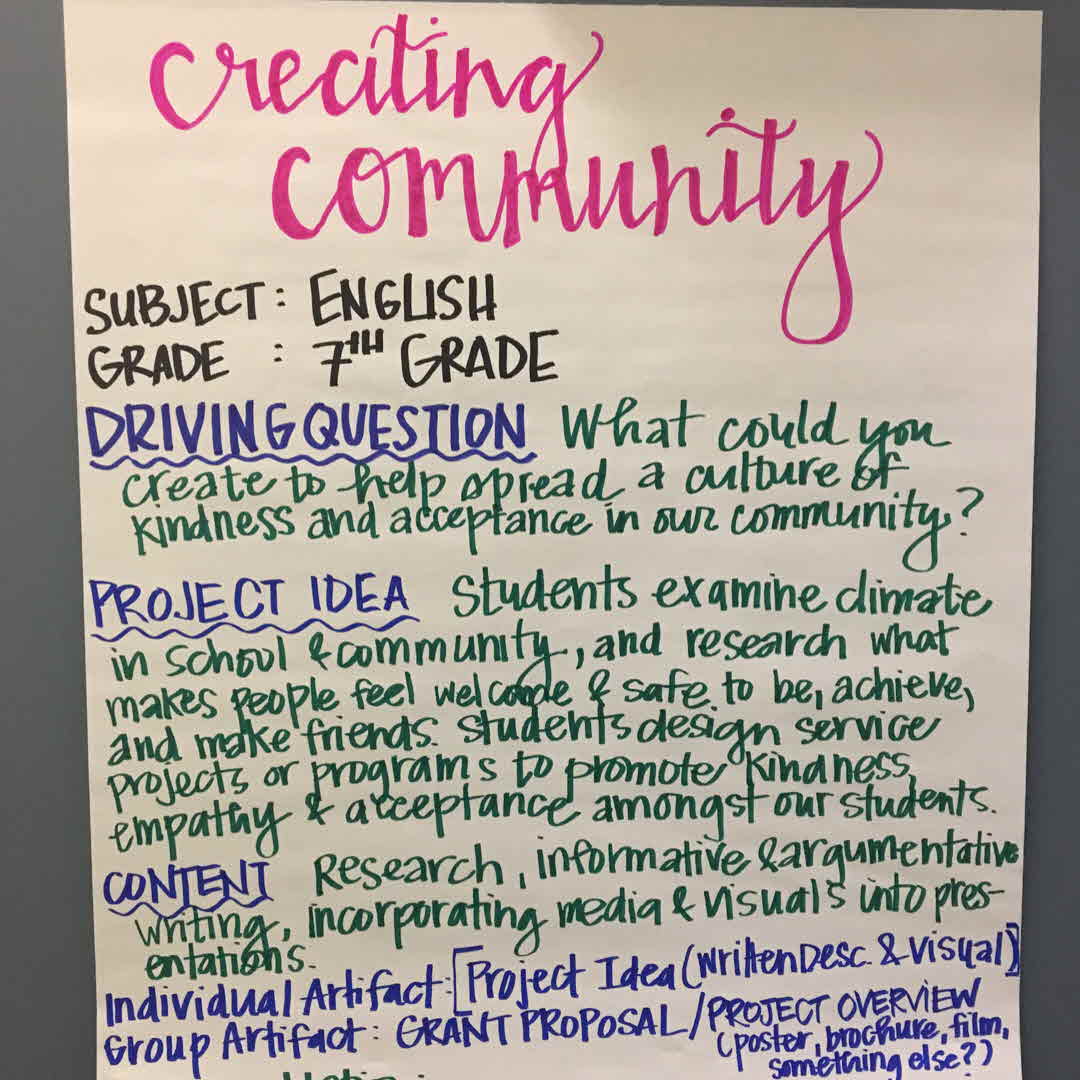 Creating
community
SUBJECT: ENGLISH
GRADE : 7TH GRADE
DRIVING QUESTION What could you
create to help spread a culture of
kindness and acceptance in our community?
PROJECT IDEA Students examine climate
in school & community, and research what
makes people feel welcome & safe to be, achieve,
and make friends. Students design service
projects or programs to promote kindness,
empathy & acceptance amongst our students.
CONTENT Research, informative & argumentative
writing, incorporating media & visuals into pres-
entations.
Individual Artifact: [Project Idea (Written Desc. & visual)]
Group Artifact: GRANT PROPOSAL/PROJECT OVERVIEW
(poster, brochure, film,
something else?)